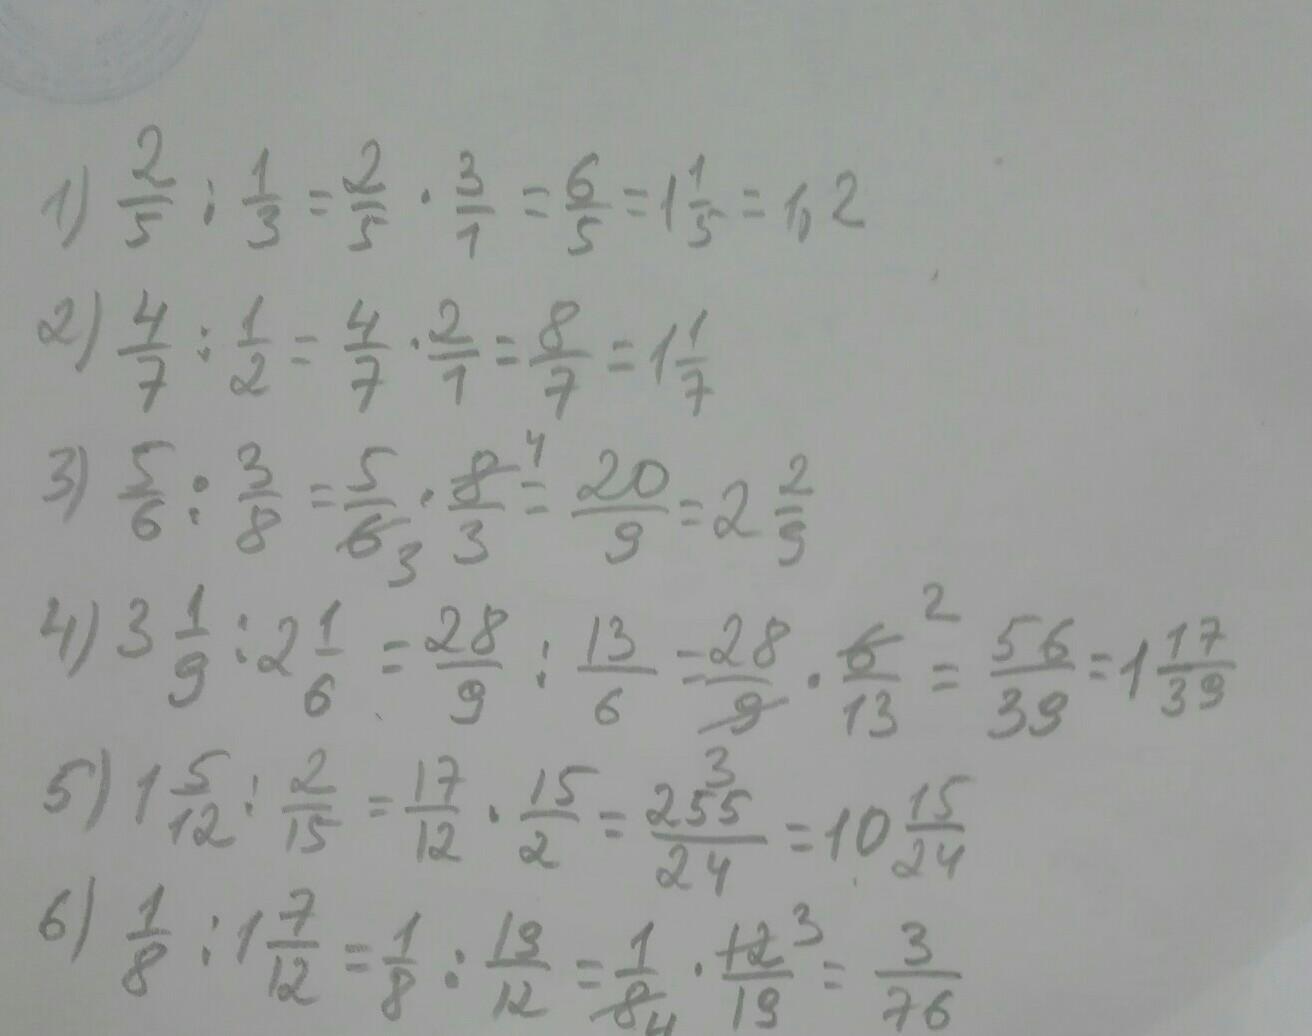 1) 2/5 : 1/3 = 2/5 · 3/1 = 6/5 = 1 1/5 = 1,2
2) 4/7 : 1/2 = 4/7 · 2/1 = 8/7 = 1 1/7
3) 5/6 : 3/8 = 5/6 3 · 8/3 4 = 20/9 = 2 2/9
4) 3 1/9 : 2 1/6 = 28/9 : 13/6 = 28/9 · 6/13 2 = 56/39 = 1 17/39
5) 1 5/12 : 2/15 = 17/12 · 15/2 3 = 255/24 = 10 15/24
6) 1/8 : 1 7/12 = 1/8 : 19/12 = 1/8 4 · 12/19 3 = 3/76